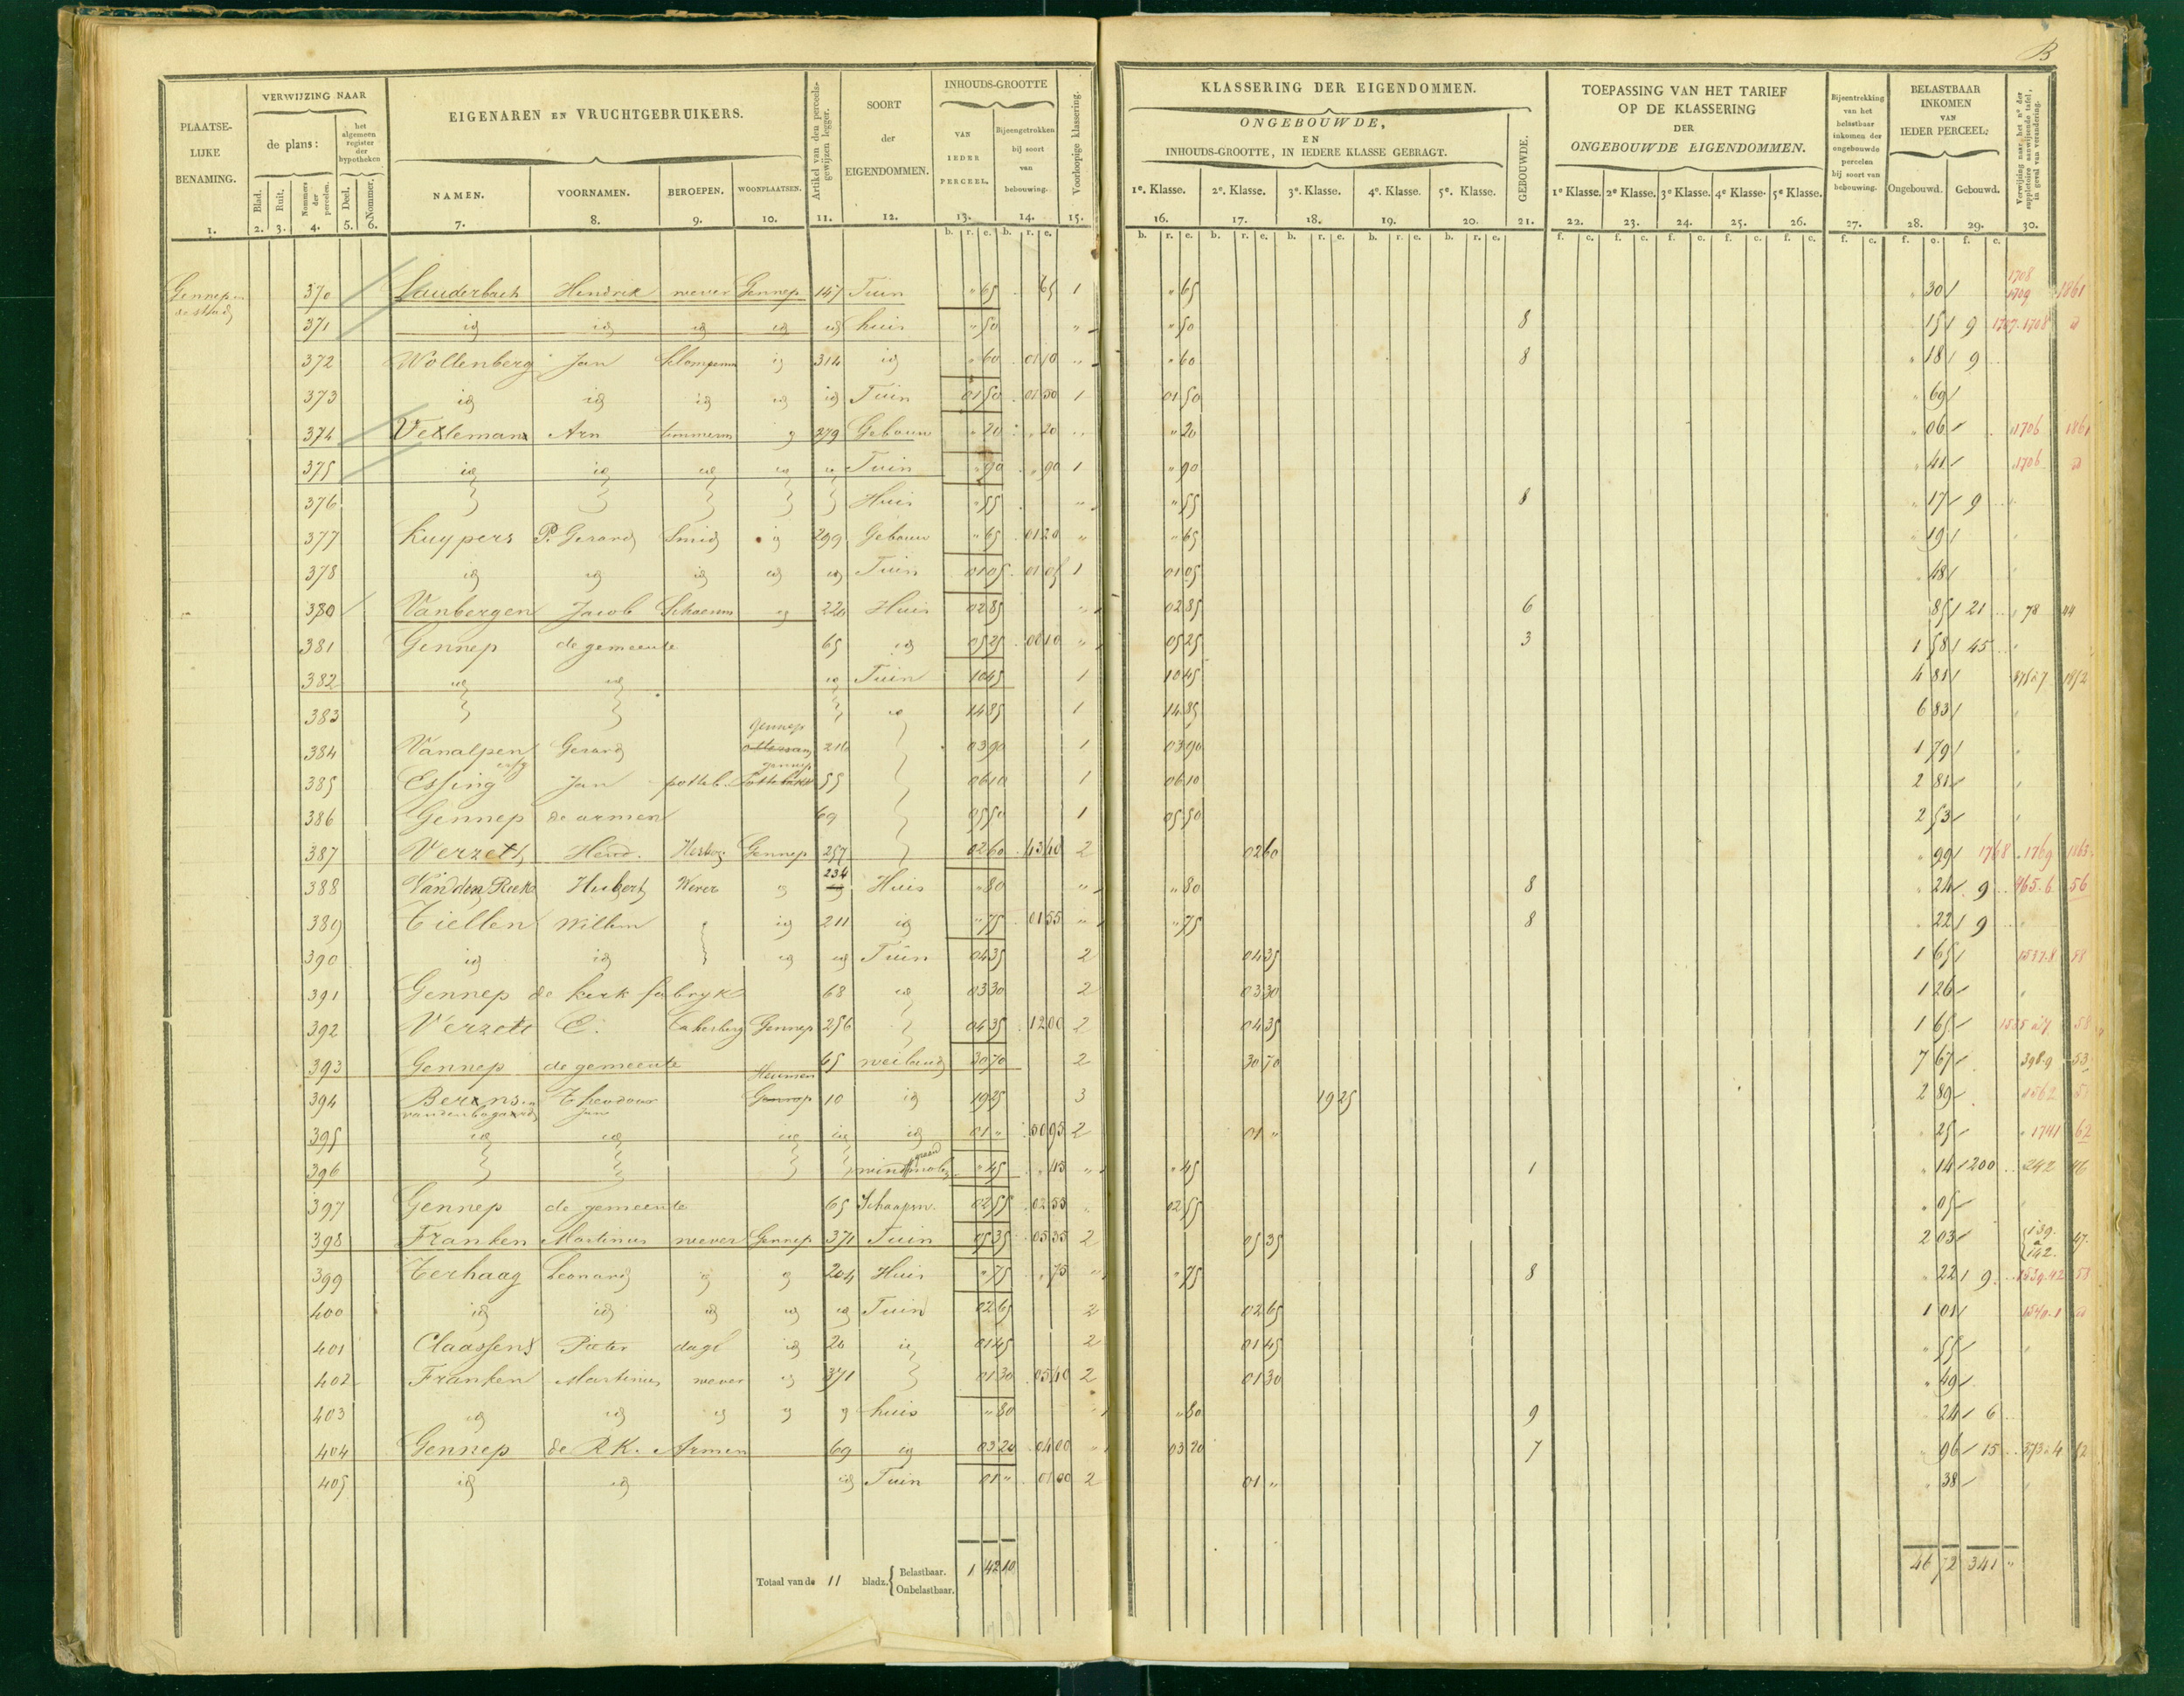 B
PLAATSE-
LIJKE
BENAMING.
VERWIJZING NAAR
de plans:
het algemeen register der hypotheken
Blad.
Ruit.
Nommers der perceelen.
Deel.
Nommer.
EIGENAREN EN VRUCHTGEBRUIKERS.
NAMEN.
VOORNAMEN.
BEROEPEN.
WOONPLAATSEN.
Artikel van den perceels-gewijzen legger.
SOORT
der
EIGENDOMMEN.
INHOUDS-GROOTTE
VAN IEDER PERCEEL.
Bijeengetrokken bij soort van bebouwing.
Voorloopige klassering.
KLASSERING DER EIGENDOMMEN.
ONGEBOUWDE,
EN
INHOUDS-GROOTTE, IN IEDERE KLASSE GEBRAGT.
1e. Klasse. 2e. Klasse. 3e. Klasse. 4e. Klasse. 5e. Klasse.
GEBOUWDE.
TOEPASSING VAN HET TARIEF
OP DE KLASSERING
DER
ONGEBOUWDE EIGENDOMMEN.
1e Klasse. 2e Klasse. 3e Klasse. 4e Klasse. 5e Klasse.
Bijeentrekking van het belastbaar inkomen der ongebouwde percelen bij soort van bebouwing.
BELASTBAAR
INKOMEN
VAN
IEDER PERCEEL:
Ongebouwd. Gebouwd.
Verwijzing naar het no. der suppletoire aanwijzende tafel, in geval van verandering.
1. 2. 3. 4. 5. 6. 7. 8. 9. 10. 11. 12. 13. 14. 15. 16. 17. 18. 19. 20. 21. 22. 23. 24. 25. 26. 27. 28. 29. 30.
Gennep 370 Lauderbach Hendrik wever Gennep 147 Tuin " 65 65 1 " 65 " 30 1708 1709 1861
de stad 371 id id id id id huis " 50 " " 50 8 " 15 9 1707.1708 d
372 Wollenberg Jan Klompenm id 314 id " 60 01 10 " " 60 8 " 18 9
373 id id id id id Tuin 01 50 01 50 1 01 50 " 69
374 Vexleman Arn timmerm id 279 Gebouw " 20 " 20 " " 20 " 06 1706 1861
375 id id id id id Tuin " 90 " 90 1 " 90 " 41 1706 d
376 Huis " 55 " " 55 8 " 17 9
377 Kuypers P. Gerard Smid id 299 Gebouw " 65 01 20 " " 65 " 19
378 id id id id id Tuin 01 05 01 05 1 01 05 " 48
380 Vanbergen Jacob Schoenm id 220 Huis 02 85 " 02 85 6 85 21 78 44
381 Gennep de gemeente 65 id 05 25 08 10 " 05 25 3 1 58 45
382 id id id Tuin 10 45 1 10 45 4 81 1852
383 id 14 85 1 14 85 6 83
384 Vanalpen Gerard Gennep 216 03 90 1 03 90 1 79
385 Essing erfg Jan potteb. gennep 55 06 10 1 06 10 2 81
386 Gennep de armen 69 05 50 1 05 50 2 53
387 Verzett Hend. Gennep 257 02 60 43 40 2 02 60 " 99 1768 1769 1863
388 Van den Rieke Hubert Wever id 234 Huis " 80 " " 80 8 " 24 9 465.6 56
389 Tiellen Willem id 211 id " 75 01 55 " " 75 8 " 22 9
390 id id id id Tuin 04 35 2 04 35 1 65 1537.8 58
391 Gennep de kerk fabryk 68 id 03 30 2 03 30 1 26
392 Verzett E. Gennep 256 04 35 12 00 2 04 35 1 65 58
393 Gennep de gemeente 65 weiland 30 70 2 30 70 7 67 398.9 53
394 Berens en Theodoor Heumen Gennep 10 id 19 25 3 19 25 2 89 1562
vandenbogaard Jan
395 id id id id id 01 " 50 95 2 01 " " 25 1741 62
396 windgraanmolen " 45 " 45 " " 45 1 " 14 200 242 46
397 Gennep de gemeente 65 Schaapsw. 02 55 02 55 " 02 55 " 05
398 Franken Martinus wever Gennep 371 Tuin 05 35 05 35 2 05 35 2 03 139 a 142 47
399 Terhaag Leonard id id 204 Huis " 75 " 75 " " 75 8 " 22 9 1539.42 58
400 id id id id id Tuin 02 65 2 02 65 1 01 1540.1 d
401 Claassens Pieter dagl id 20 id 01 45 2 01 45 " 55
402 Franken Martinus wever id 371 01 30 05 40 2 01 30 " 49
403 id id id id id huis " 80 " " 80 9 24 6
404 Gennep de R K. Armen 69 id 03 20 04 00 " 03 20 7 " 96 15 573.4 62
405 id id id Tuin 01 " 01 00 2 01 " " 38
Totaal van de 11 bladz. Belastbaar. 1 42 10 46 72 341 "
Onbelastbaar.